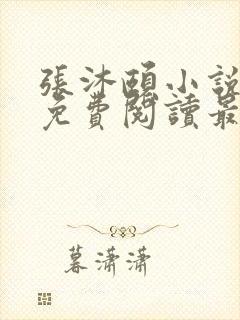 張沐頤小說
免費閱讀最
暮瀟瀟